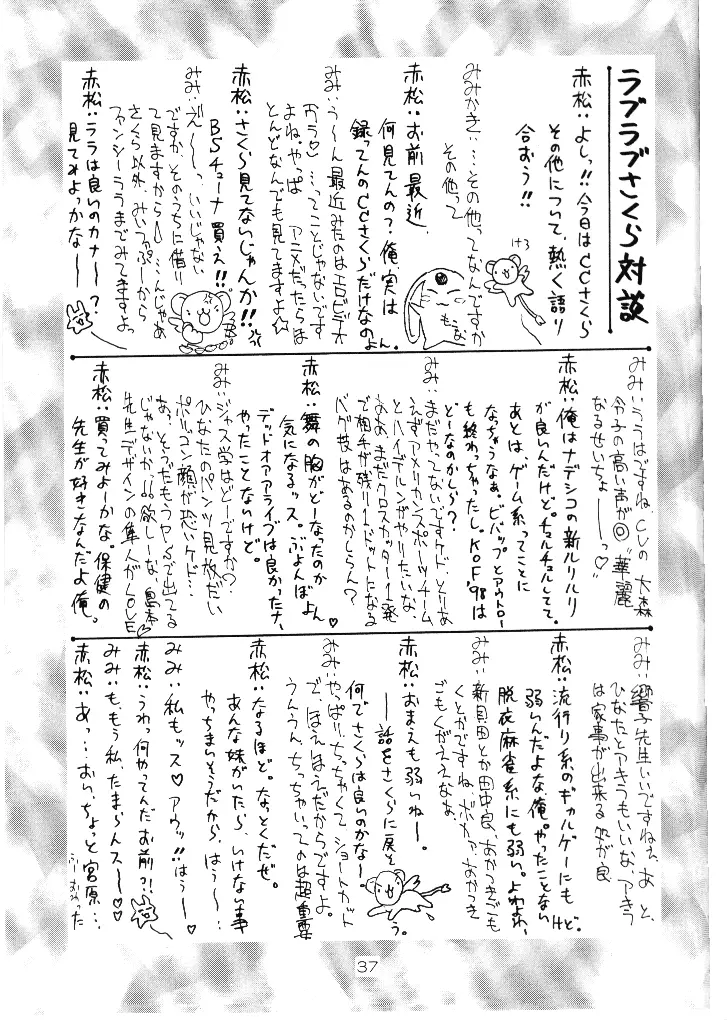 ラブラブさくら対談
赤松:よしっ!!今日はCCさくら
その他について、熱く語り
合おう!!
みみかき:…その他ってなんですか
その他って
赤松:お前最近、
何見てんの?俺、実は
録ってんのCCさくらだけなのよん。
みみ:う〜ん最近みたのはエロビデオ
…ってことじゃないです
よね。やっぱ アニメだったらほ
とんどなんでも見てますよ☆
赤松:さくら見てないじゃんか!!
BSチューナ買え!!
みみ:え〜っ、いいじゃない
ですか、そのうちに借り
て見ますから
さくら以外、みいつぷーから
ファンシーララまでみてますよ。
赤松:ララは良いのカナー?
見てみよっかなー
けろ
もこな
みみ:ララはですね、CVの大森
令子の高い声が◎"華麗
なるせいちょーーっ♡"
赤松:俺はナデシコの新ルリルリ
が良いんだけど。チュルチュルしてて。
あとは、ゲーム系ってことに
なっちゃうなぁ。ビバップとアウトロー
も終わっちゃったし。KOF98は
どーなのかしら?
みみ:まだやってないですケド、とりあ
えずアメリカンスポーツチーム
とハイデルンがやりたいな。
まだクロスカッター1発
で相手が残り1ドットになる
バグ技はあるのかしらん?
赤松:舞の胸がどーなったのか
気になるッス。ぷよんぽよん♡
デッドオアアライブは良かったナ、
やったことないけど。
みみ:ジャス学はどーですか?
ひなたのパンツ見放だい
ポリゴン顔が恐いケド…
あっ、そうだもうP.Sで出てる
じゃないか!!欲しーな、島本
先生デザインの隼人がLOVE♡
赤松:買ってみよーかな。保健の
先生が好きなんだよ俺。
みみ:響子先生いいですねぇ、あと、
ひなたとアキラもいいな、アキラ
は家事が出来る所が良
赤松:流行り系のギャルゲーにも
弱いんだよな、俺。やったことない
けど。
脱衣麻雀系にも弱い。よわよわ、
みみ:新貝田とか田中良、あかつきごも
くとかですね、ボカァ、あかつき
ごもくがええなぁ
赤松:おまえも弱いねー。
ー話をさくらに戻そう。
何でさくらは良いのかなー
みみ:やっぱりちっちゃくて ショートカット
で、ほえほえだからですよ。
うんうん、ちっちゃいってのは超重要
赤松:なるほど。なっとくだぜ。
37